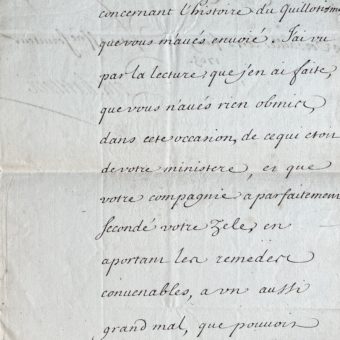 concernant l'histoire du Quillotisme
que vous m'avés envoié. J'ai vu
par la lecture que j'en ai faite,
que vous n'avés rien obmis,
dans cete occasion, de ce qui etoit
de votre ministere, et que
votre compagnie a parfaitement
secondé votre Zele, en
aportant les remedes
convenables, a un aussi
grand mal, que pouvoir